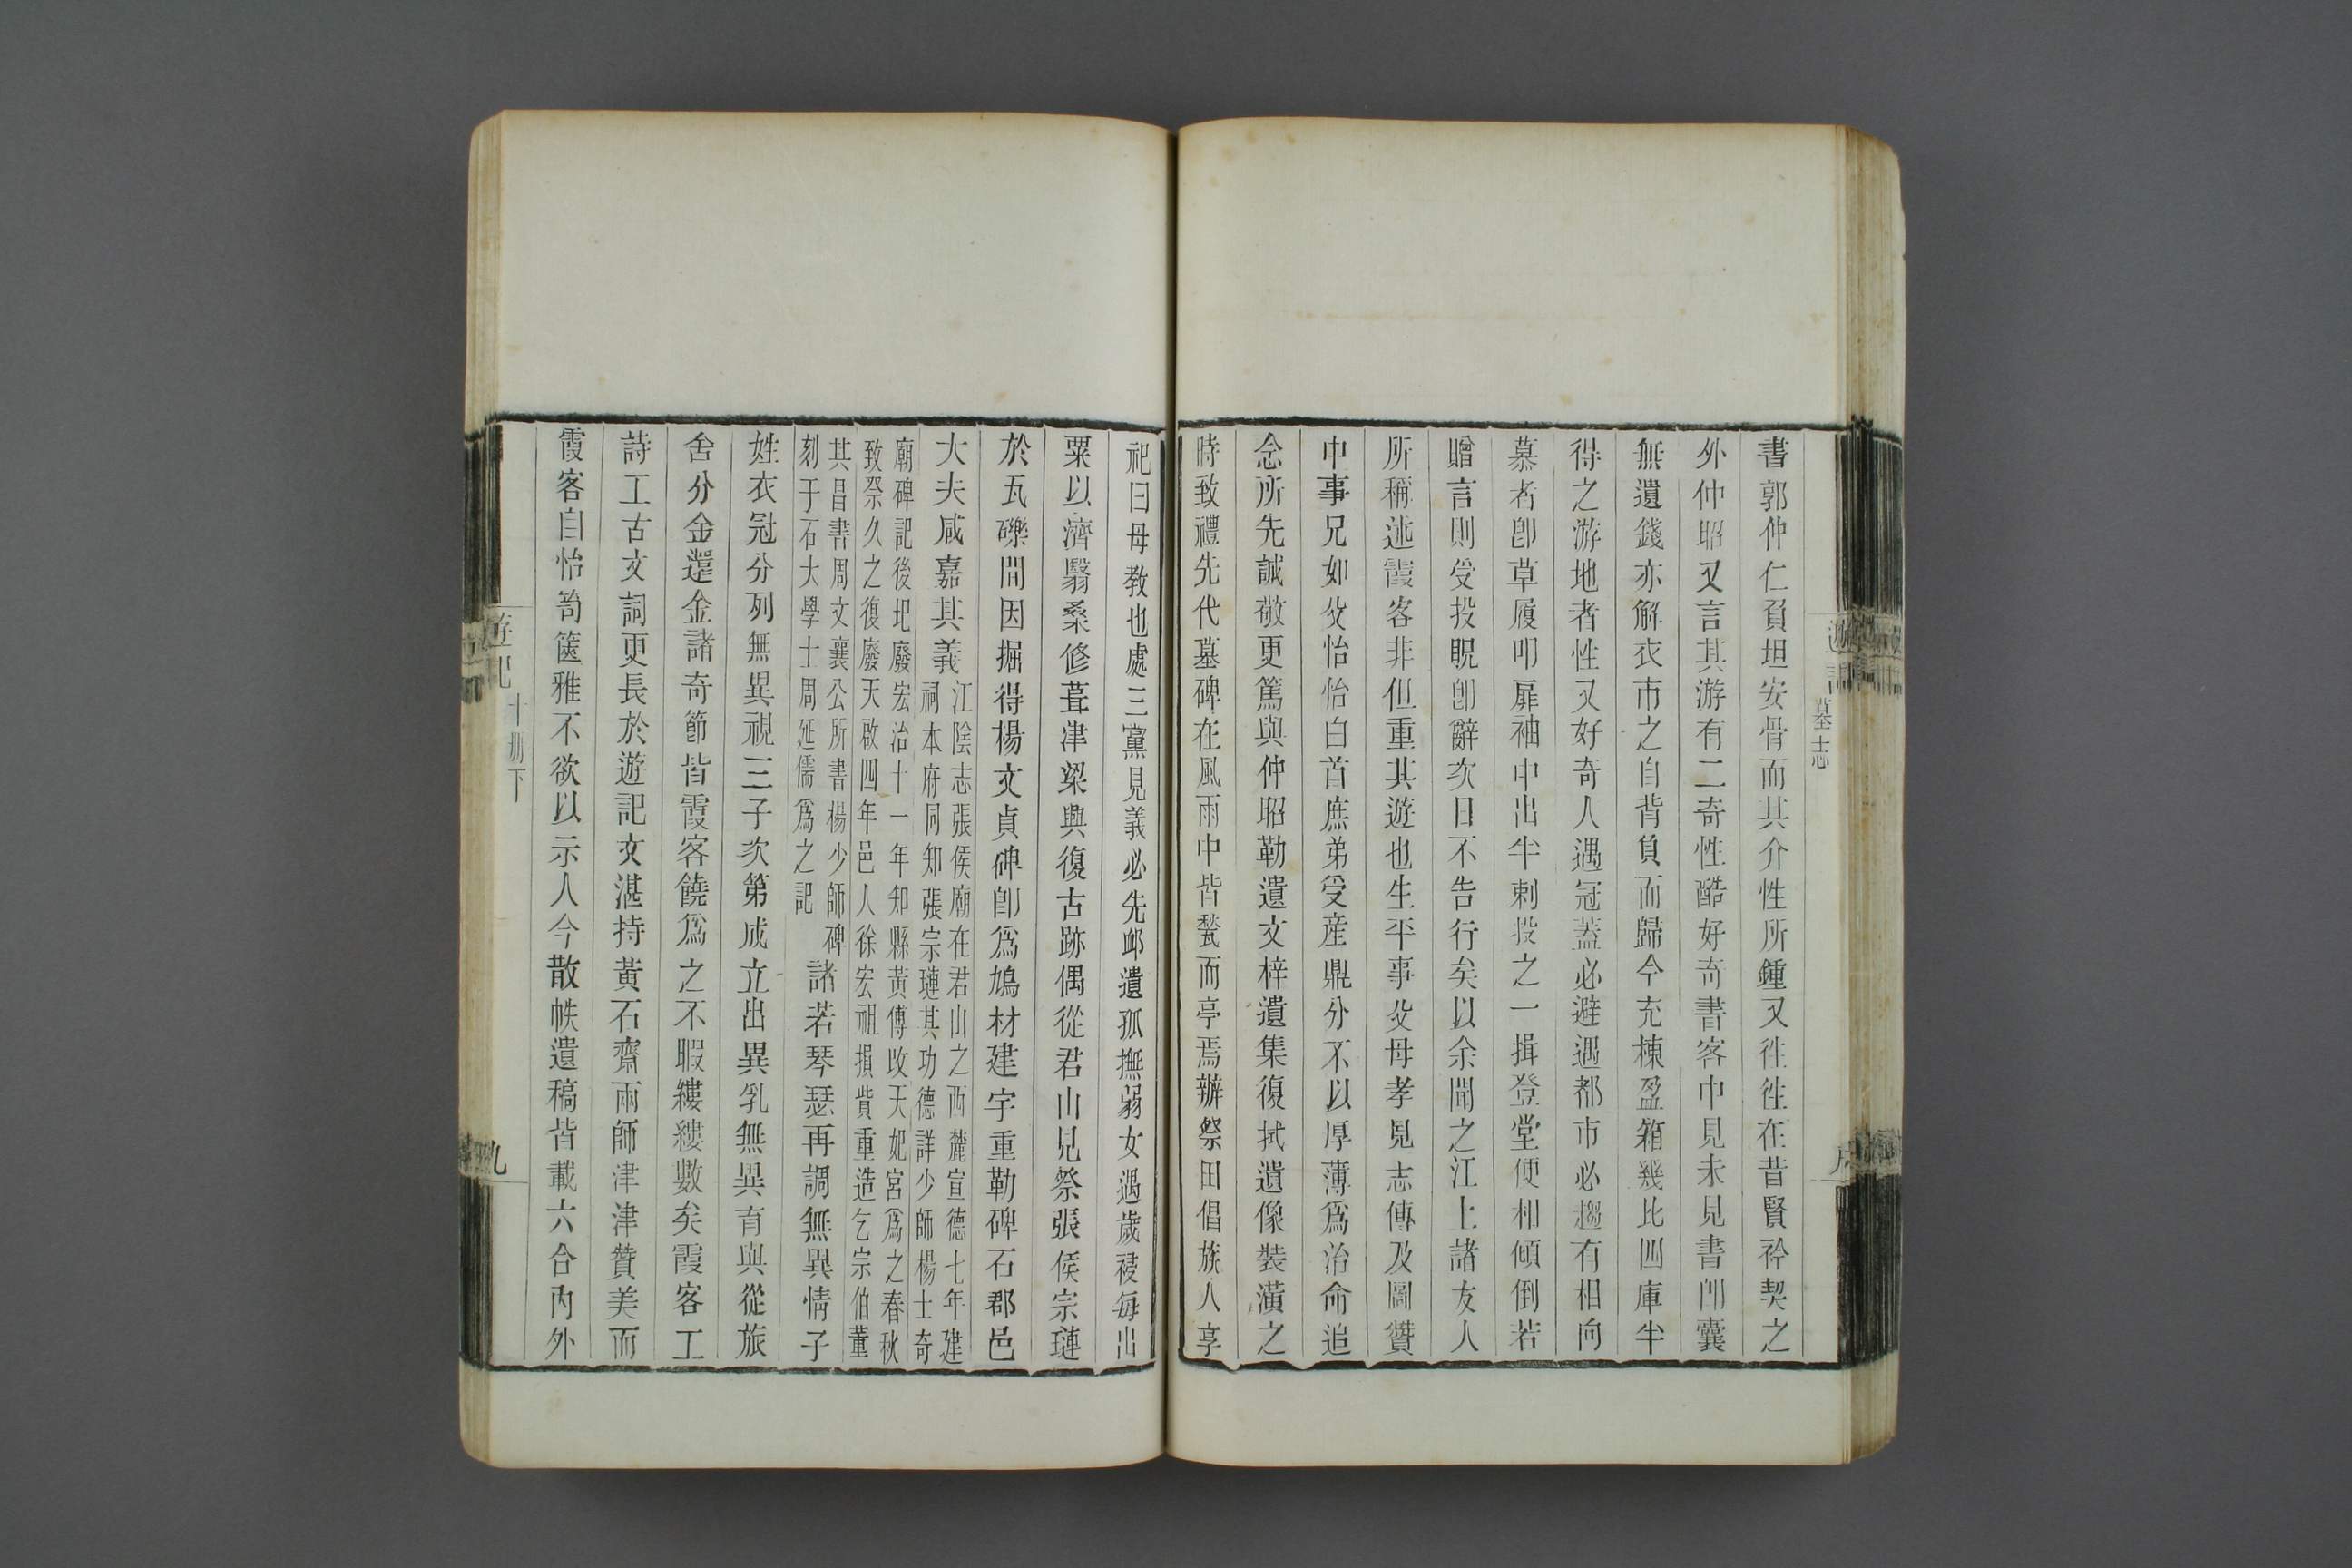 書郭仲仁負坦安骨而其介性所鍾又徃徃在昔賢衿契之
外仲昭又言其游有二奇性酷好奇書客中見未見書卽囊
無遺錢亦解衣市之自背負而歸今充棟盈箱幾比四庫半
得之游地者性又好奇人遇冠蓋必避遇都市必趨有相向
慕者卽草履叩扉袖中出半刺投之一揖登堂便相傾倒若
贈言則受投贶卽辭次日不告行矣以余聞之江上諸友人
所稱述霞客非但重其遊也生平事父母孝見志傳及圖贊
中事兄如父怡怡白首庶弟受産鼎分不以厚薄爲治命追
念所先誠敬更篤與仲昭勒遺文梓遺集復拭遺像裝潢之
時致禮先代墓碑在風雨中皆甃而亭焉辦祭田倡族人享
祀曰母教也處三黨見義必先卹遺孤撫弱女遇歲祲每出
粟以濟翳桑修葺津梁興復古跡偶從君山見祭張侯宗璉
於瓦礫間因掘得楊文貞碑卽爲鳩材建宇重勒碑石郡邑
大夫咸嘉其義
江陰志張侯廟在君山之西麓宣德七年建
祠本府同知張宗璉其功德詳少師楊士奇
廟碑記後圯廢宏治十一年知縣黃傅改天妃宮爲之春秋
致祭久之復廢天啟四年邑人徐宏祖捐貲重造乞宗伯董
其昌書周文襄公所書楊少師碑
刻于石大學士周延儒爲之記
諸若琴瑟再調無異情子
姓衣冠分列無異視三子次第成立出異乳無異育與從旅
舍分金還金諸奇節皆霞客饒爲之不暇縷縷數矣霞客工
詩工古文詞更長於遊記文湛持黃石齋兩師津津贊美而
霞客自怡笥篋雅不欲以示人今散帙遺稿皆載六合内外
遊記
墓志
遊記
十冊下
九